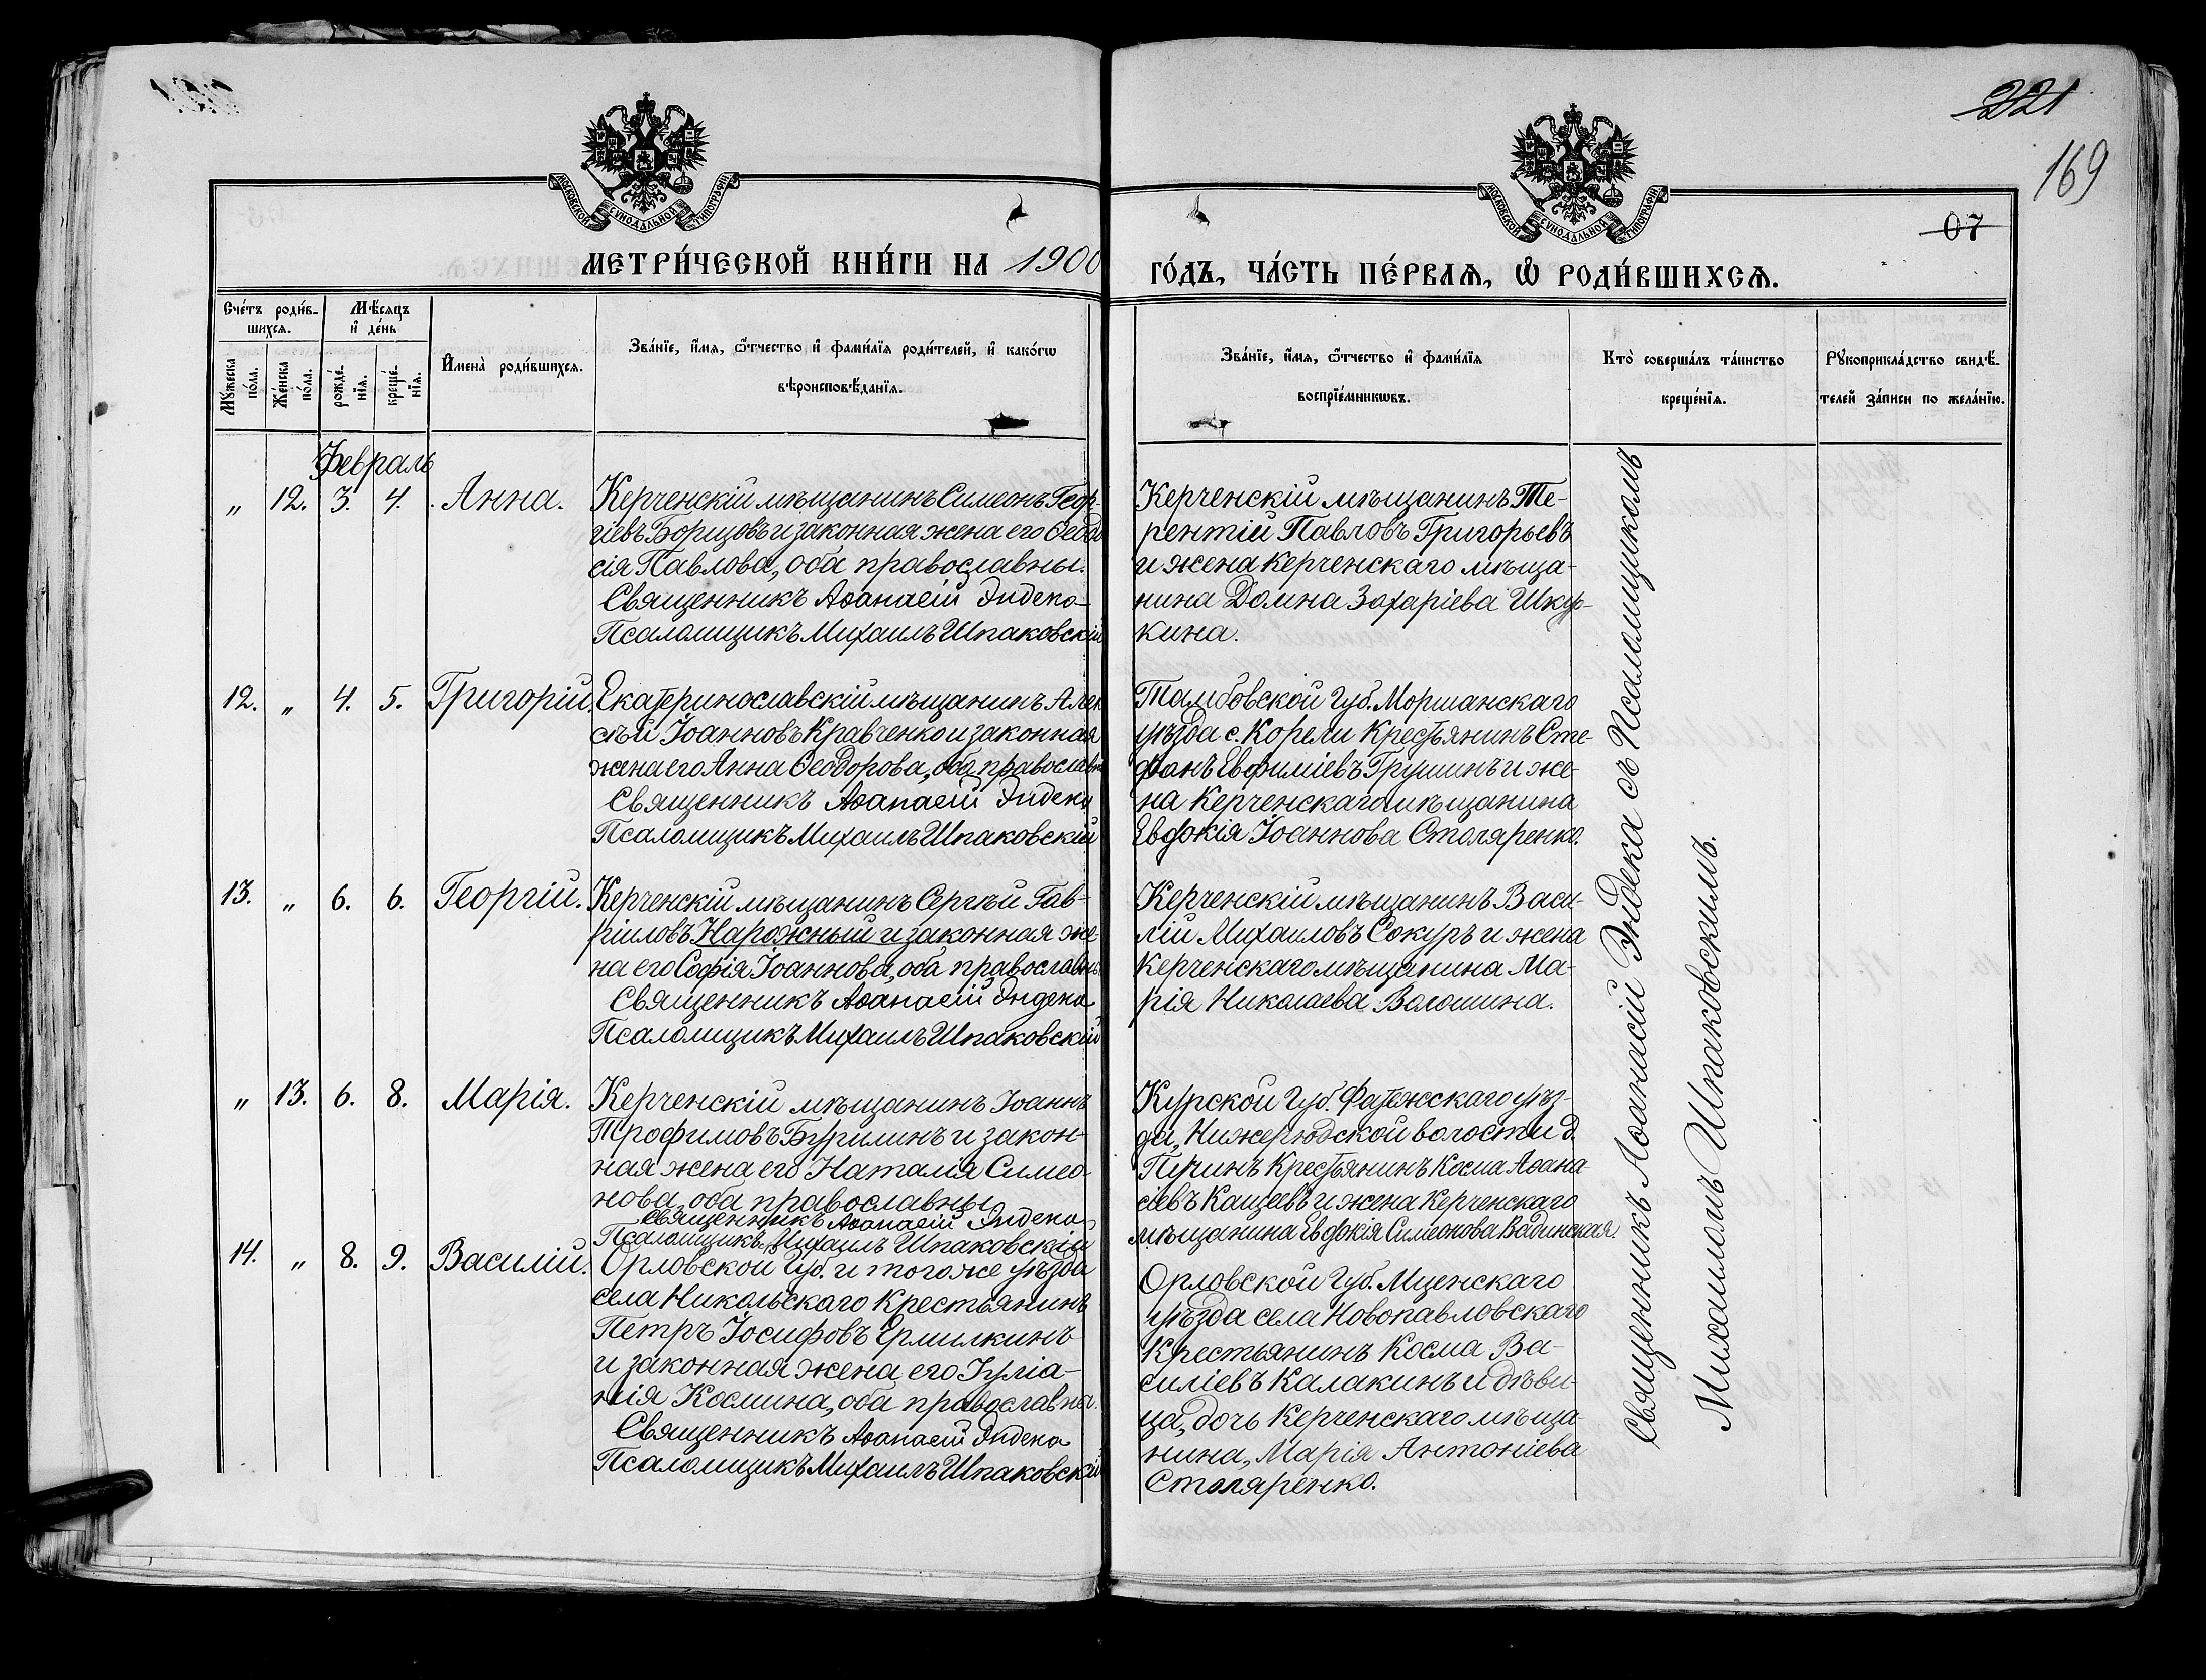 221
169
07
МОСКОВСКОЙ СѴНОДАЛЬНОЙ ТИПОГРАФІИ
МОСКОВСКОЙ СѴНОДАЛЬНОЙ ТИПОГРАФІИ
МЕТРИ́ЧЕСКОЙ КНИ́ГИ НА 1900
ГО́ДЪ, ЧА́СТЬ ПЕ́РВАѦ, Ѡ РОДИ́ВШИХСѦ.
Сче́тъ роди́в-
шихся.
Мѣ́сяцъ
и де́нь
Му́жеска
по́ла.
Же́нска
по́ла.
рожде́-
нїя.
креще́-
нїя.
Имена̀ роди́вшихся.
Зва́нїе, и́мя, ѻ҆́тчество и фами́лїя роди́телей, и како́гѡ
вѣроисповѣ́данїя.
Зва́нїе, и́мя, ѻ҆́тчество и фами́лїя
воспрїе́мникѡвъ.
Кто̀ соверша́лъ та́инство
креще́нїя.
Рукоприкла́дство свидѣ́-
телей за́писи по жела́нїю.
Февраль
„ 12. 3. 4. Анна.
Керченскій мѣщанинъ Симеонъ Геор-
гіевъ Борщовъ и законная жена его Ѳеодо
сія Павлова, оба православны.
Священникъ Аѳанасій Эндека
Псаломщикъ Михаилъ Шпаковскій
Керченскій мѣщанинъ Те-
рентій Павловъ Григорьевъ
и жена керченскаго мѣща-
нина Домна Захаріева Шкур-
кина.
12. „ 4. 5. Григорій.
Екатеринославскій мѣщанинъ Алек
сѣй Іоанновъ Кравченко и законная
жена его Анна Ѳеодорова, оба православн
Священникъ Аѳанасій Эндека
Псаломщикъ Михаилъ Шпаковскій
Тамбовской Губ. Моршанскаго
уѣзда с. Корели Крестьянинъ Сте-
фанъ Евфиміевъ Грушинъ и же-
на Керченскаго мѣщанина
Евфокія Іоаннова Столяренко.
13. „ 6. 6. Георгій.
Керченскій мѣщанинъ Сергѣй Гав-
ріиловъ Нарожный и законная же-
на его Софія Іоаннова, оба православны
Священникъ Аѳанасій Эндека
Псаломщикъ Михаилъ Шпаковскій
Керченскій мѣщанинъ Васи-
лій Михаиловъ Сокуръ и жена
Керченскаго мѣщанина Ма-
рія Николаева Волошина.
„ 13. 6. 8. Марія.
Керченскій мѣщанинъ Іоаннъ
Трофимовъ Бурилинъ и закон-
ная жена его Наталія Симео-
нова, оба православны
Священникъ Аѳанасій Эндека
Псаломщикъ Михаилъ Шпаковскій
Курской Губ. Фатежскаго уѣз-
да, Нижереюдской волости д.
Пучинъ Крестьянинъ Косма Аѳана-
сіевъ Кащеевъ и жена Керченскаго
мѣщанина Евфокія Симеонова Вадинская.
14. „ 8. 9. Василій.
Орловской Губ. и того же уѣзда
села Никольскаго Крестьянинъ
Петръ Іосифовъ Ермилкинъ
и законная жена его Іуліа-
нія Космина, оба православны.
Священникъ Аѳанасій Эндека
Псаломщикъ Михаилъ Шпаковскій
Орловской Губ. Мценскаго
уѣзда села Новопавловскаго
Крестьянинъ Косма Ва-
силіевъ Калакинъ и дѣви-
ца, дочь Керченскаго мѣща-
нина, Марія Антоніева
Столяренко.
Священникъ Аѳанасій Эндека съ Псаломщикомъ
Михаиломъ Шпаковскимъ.